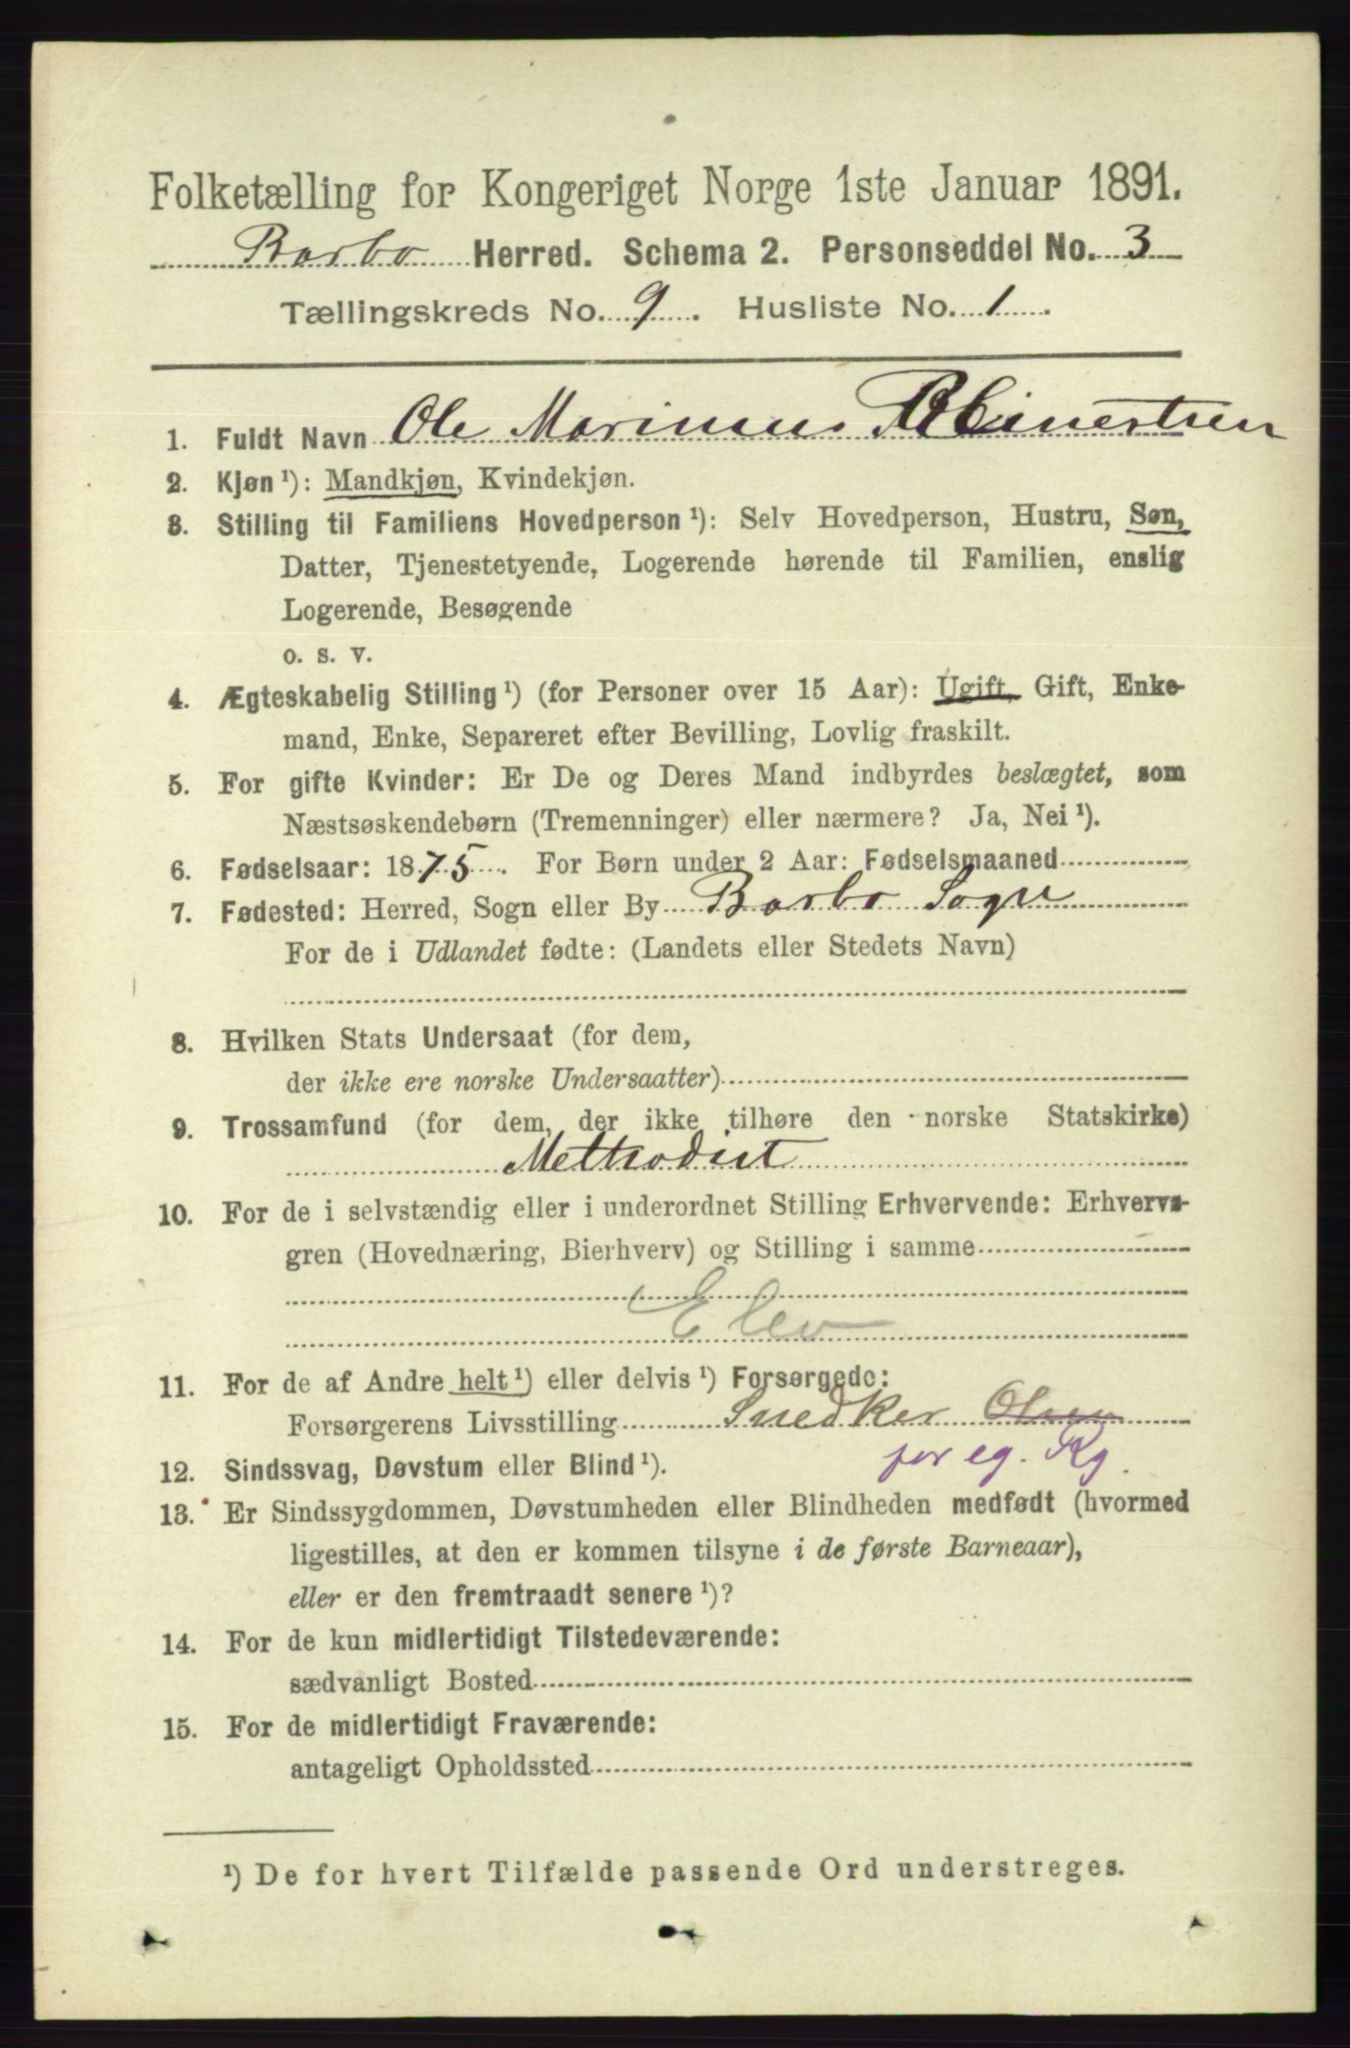 Folketælling for Kongeriget Norge 1ste Januar 1891.
Barbo Herred. Schema 2. Personseddel No. 3
Tællingskreds No. 9. Husliste No. 1.
1. Fuldt Navn Ole Marinus Reinertsen
2. Kjøn ¹): Mandkjøn, Kvindekjøn.
3. Stilling til Familiens Hovedperson ¹): Selv Hovedperson, Hustru, Søn,
Datter, Tjenestetyende, Logerende hørende til Familien, enslig
Logerende, Besøgende
o. s. v.
4. Ægteskabelig Stilling ¹) (for Personer over 15 Aar): Ugift, Gift, Enke-
mand, Enke, Separeret efter Bevilling, Lovlig fraskilt.
5. For gifte Kvinder: Er De og Deres Mand indbyrdes beslægtet, som
Næstsøskendebørn (Tremenninger) eller nærmere? Ja, Nei ¹).
6. Fødselsaar: 1875. For Børn under 2 Aar: Fødselsmaaned
7. Fødested: Herred, Sogn eller By Barbo Sogn
For de i Udlandet fødte: (Landets eller Stedets Navn)
8. Hvilken Stats Undersaat (for dem,
der ikke ere norske Undersaatter)
9. Trossamfund (for dem, der ikke tilhøre den norske Statskirke)
Methodist
10. For de i selvstændig eller i underordnet Stilling Erhvervende: Erhvervs-
gren (Hovednæring, Bierhverv) og Stilling i samme
Elev
11. For de af Andre helt ¹) eller delvis ¹) Forsørgede:
Forsørgerens Livsstilling Snedker Olsen
for eg. Rg.
12. Sindssvag, Døvstum eller Blind ¹).
13. Er Sindssygdommen, Døvstumheden eller Blindheden medfødt (hvormed
ligestilles, at den er kommen tilsyne i de første Barneaar),
eller er den fremtraadt senere ¹)?
14. For de kun midlertidigt Tilstedeværende:
sædvanligt Bosted
15. For de midlertidigt Fraværende:
antageligt Opholdssted
¹) De for hvert Tilfælde passende Ord understreges.